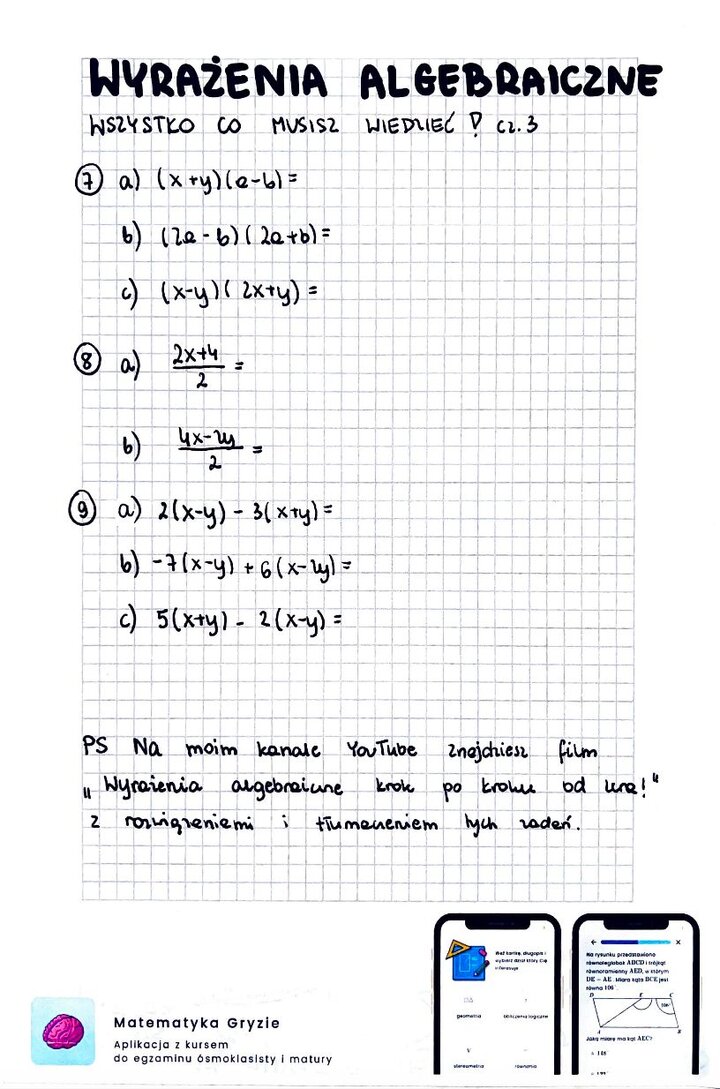 WYRAŻENIA ALGEBRAICZNE
WSZYSTKO CO MUSISZ WIEDZIEĆ! cz. 3
7 a) (x+y)(a-b)=
b) (2a-b)(2a+b)=
c) (x-y)(2x+y)=
8 a) \frac{2x+4}{2} =
b) \frac{4x-2y}{2} =
9 a) 2(x-y) - 3(x+y)=
b) -7(x-y) + 6(x-2y)=
c) 5(x+y) - 2(x-y)=
PS Na moim kanale YouTube znajdziesz film
„Wyrażenia algebraiczne krok po kroku od zera!"
z rozwiązaniami i tłumaczeniem tych zadań.
Matematyka Gryzie
Aplikacja z kursem
do egzaminu ósmoklasisty i matury
Weź kartkę, długopis i
wybierz dział który Cię
interesuje
geometria
obliczenia logiczne
stereometria
równania
Na rysunku przedstawiono
równoległobok ABCD i trójkąt
równoramienny AED, w którym
DE = AE. Miara kąta BCE jest
równa 106°.
D E C
106°
A B
Jaką miarę ma kąt AEC?